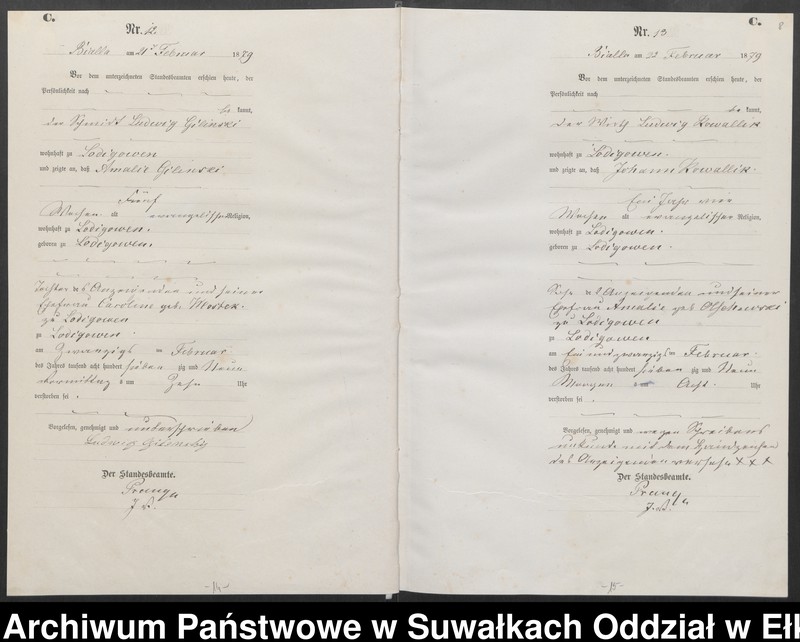 C.
Nr. 12
Bialla am 21ten Februar 1879
Vor dem unterzeichneten Standesbeamten erschien heute, der
Persönlichkeit nach
be kannt,
der Schmidt Ludwig Gilinski
wohnhaft zu Lodigowen
und zeigte an, daß Amalie Gilinski
Fünf
Wochen alt evangelischer Religion,
wohnhaft zu Lodigowen.
geboren zu Lodigowen.
Tochter des Anzeigenden und seiner
Ehefrau Caroline geb.
zu Lodigowen
zu Lodigowen
am Zwanzigs ten Februar
des Jahres tausend acht hundert sieben zig und Neun
Vormittag s um Zehn Uhr
verstorben sei.
Vorgelesen, genehmigt und unterschrieben
Ludwig Gilinski
Der Standesbeamte.
J. V.
-14-
C.
Nr. 13
Bialla am 22 Februar 1879
Vor dem unterzeichneten Standesbeamten erschien heute, der
Persönlichkeit nach
be kannt,
der Wirth Ludwig Kowallik
wohnhaft zu Lodigowen.
und zeigte an, daß Johann Kowallik.
Ein Jahr vier
Wochen alt evangelischer Religion,
wohnhaft zu Lodigowen.
geboren zu Lodigowen.
Sohn des Anzeigenden und seiner
Ehefrau Amalie geb
zu Lodigowen
zu Lodigowen
am Ein und zwanzigs ten Februar.
des Jahres tausend acht hundert sieben zig und Neun
Morgens um Acht Uhr
verstorben sei.
Vorgelesen, genehmigt und wegen Schreibens
unkunde mit dem Handzeichen
des Anzeigenden versehen + + +
Der Standesbeamte.
J. V.
-15-
Archiwum Państwowe w Suwałkach Oddział w Ełk